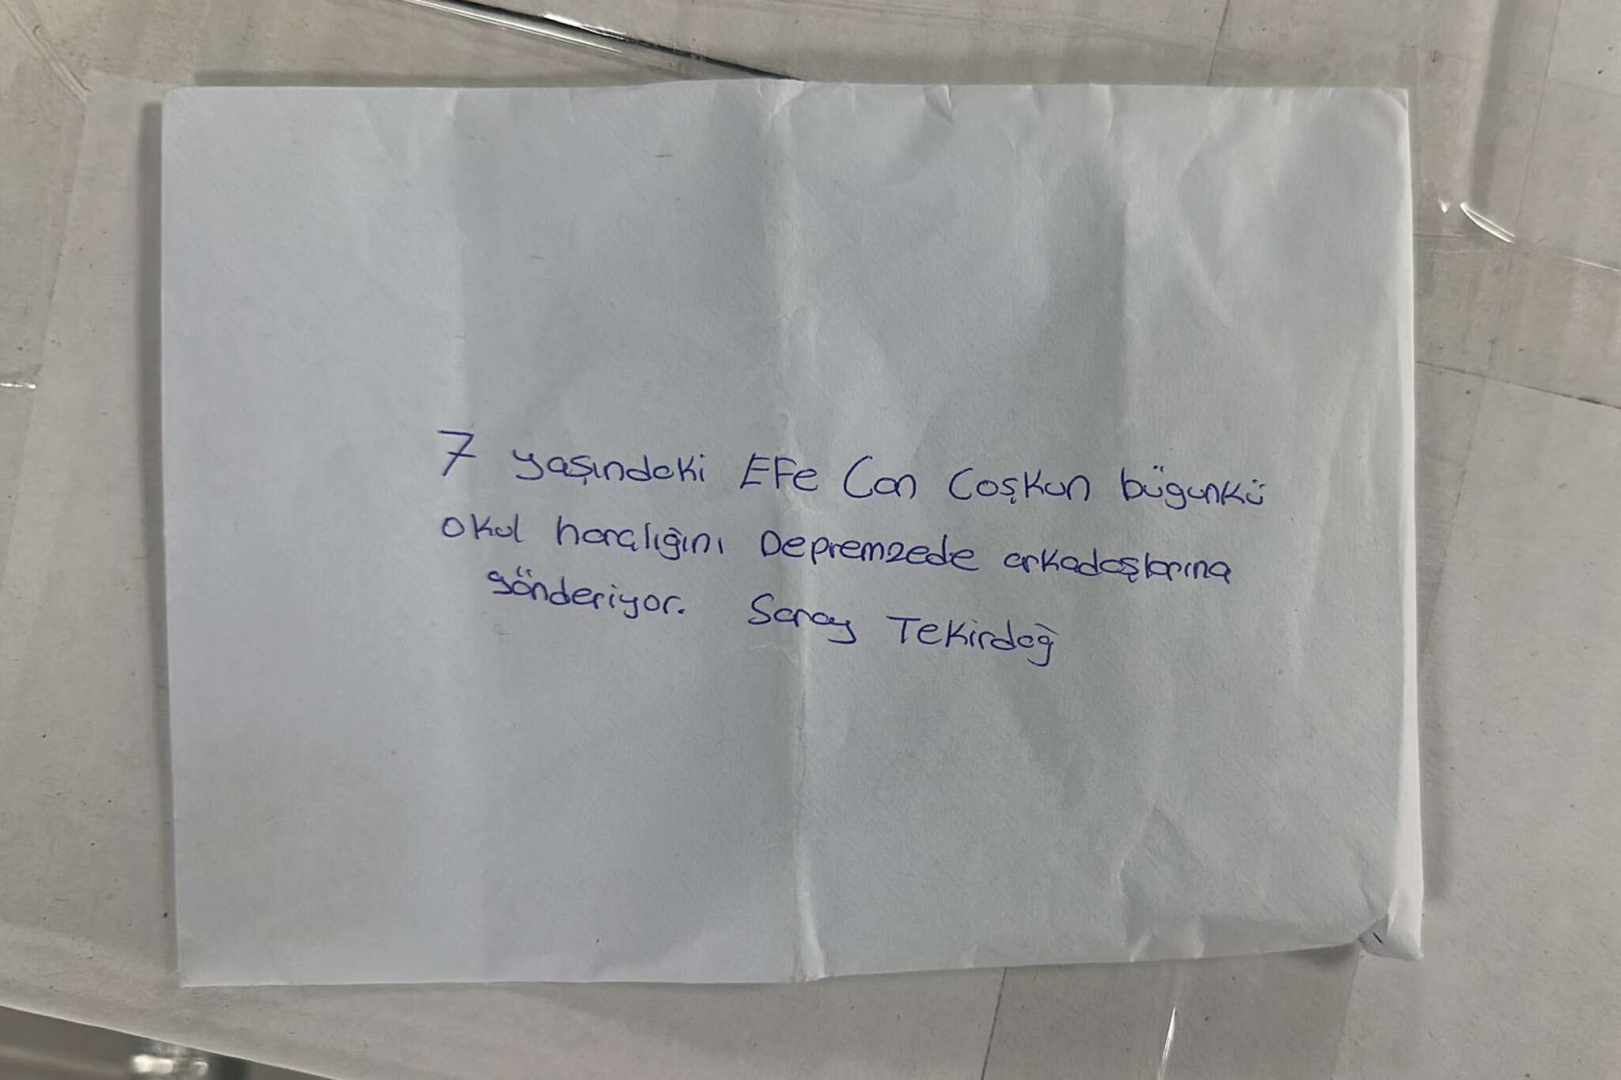 7 yaşındaki Efe Can Coşkun bügunkü
okul harçlığını Depremzede arkadaşlarına
gönderiyor. Saray Tekirdağ